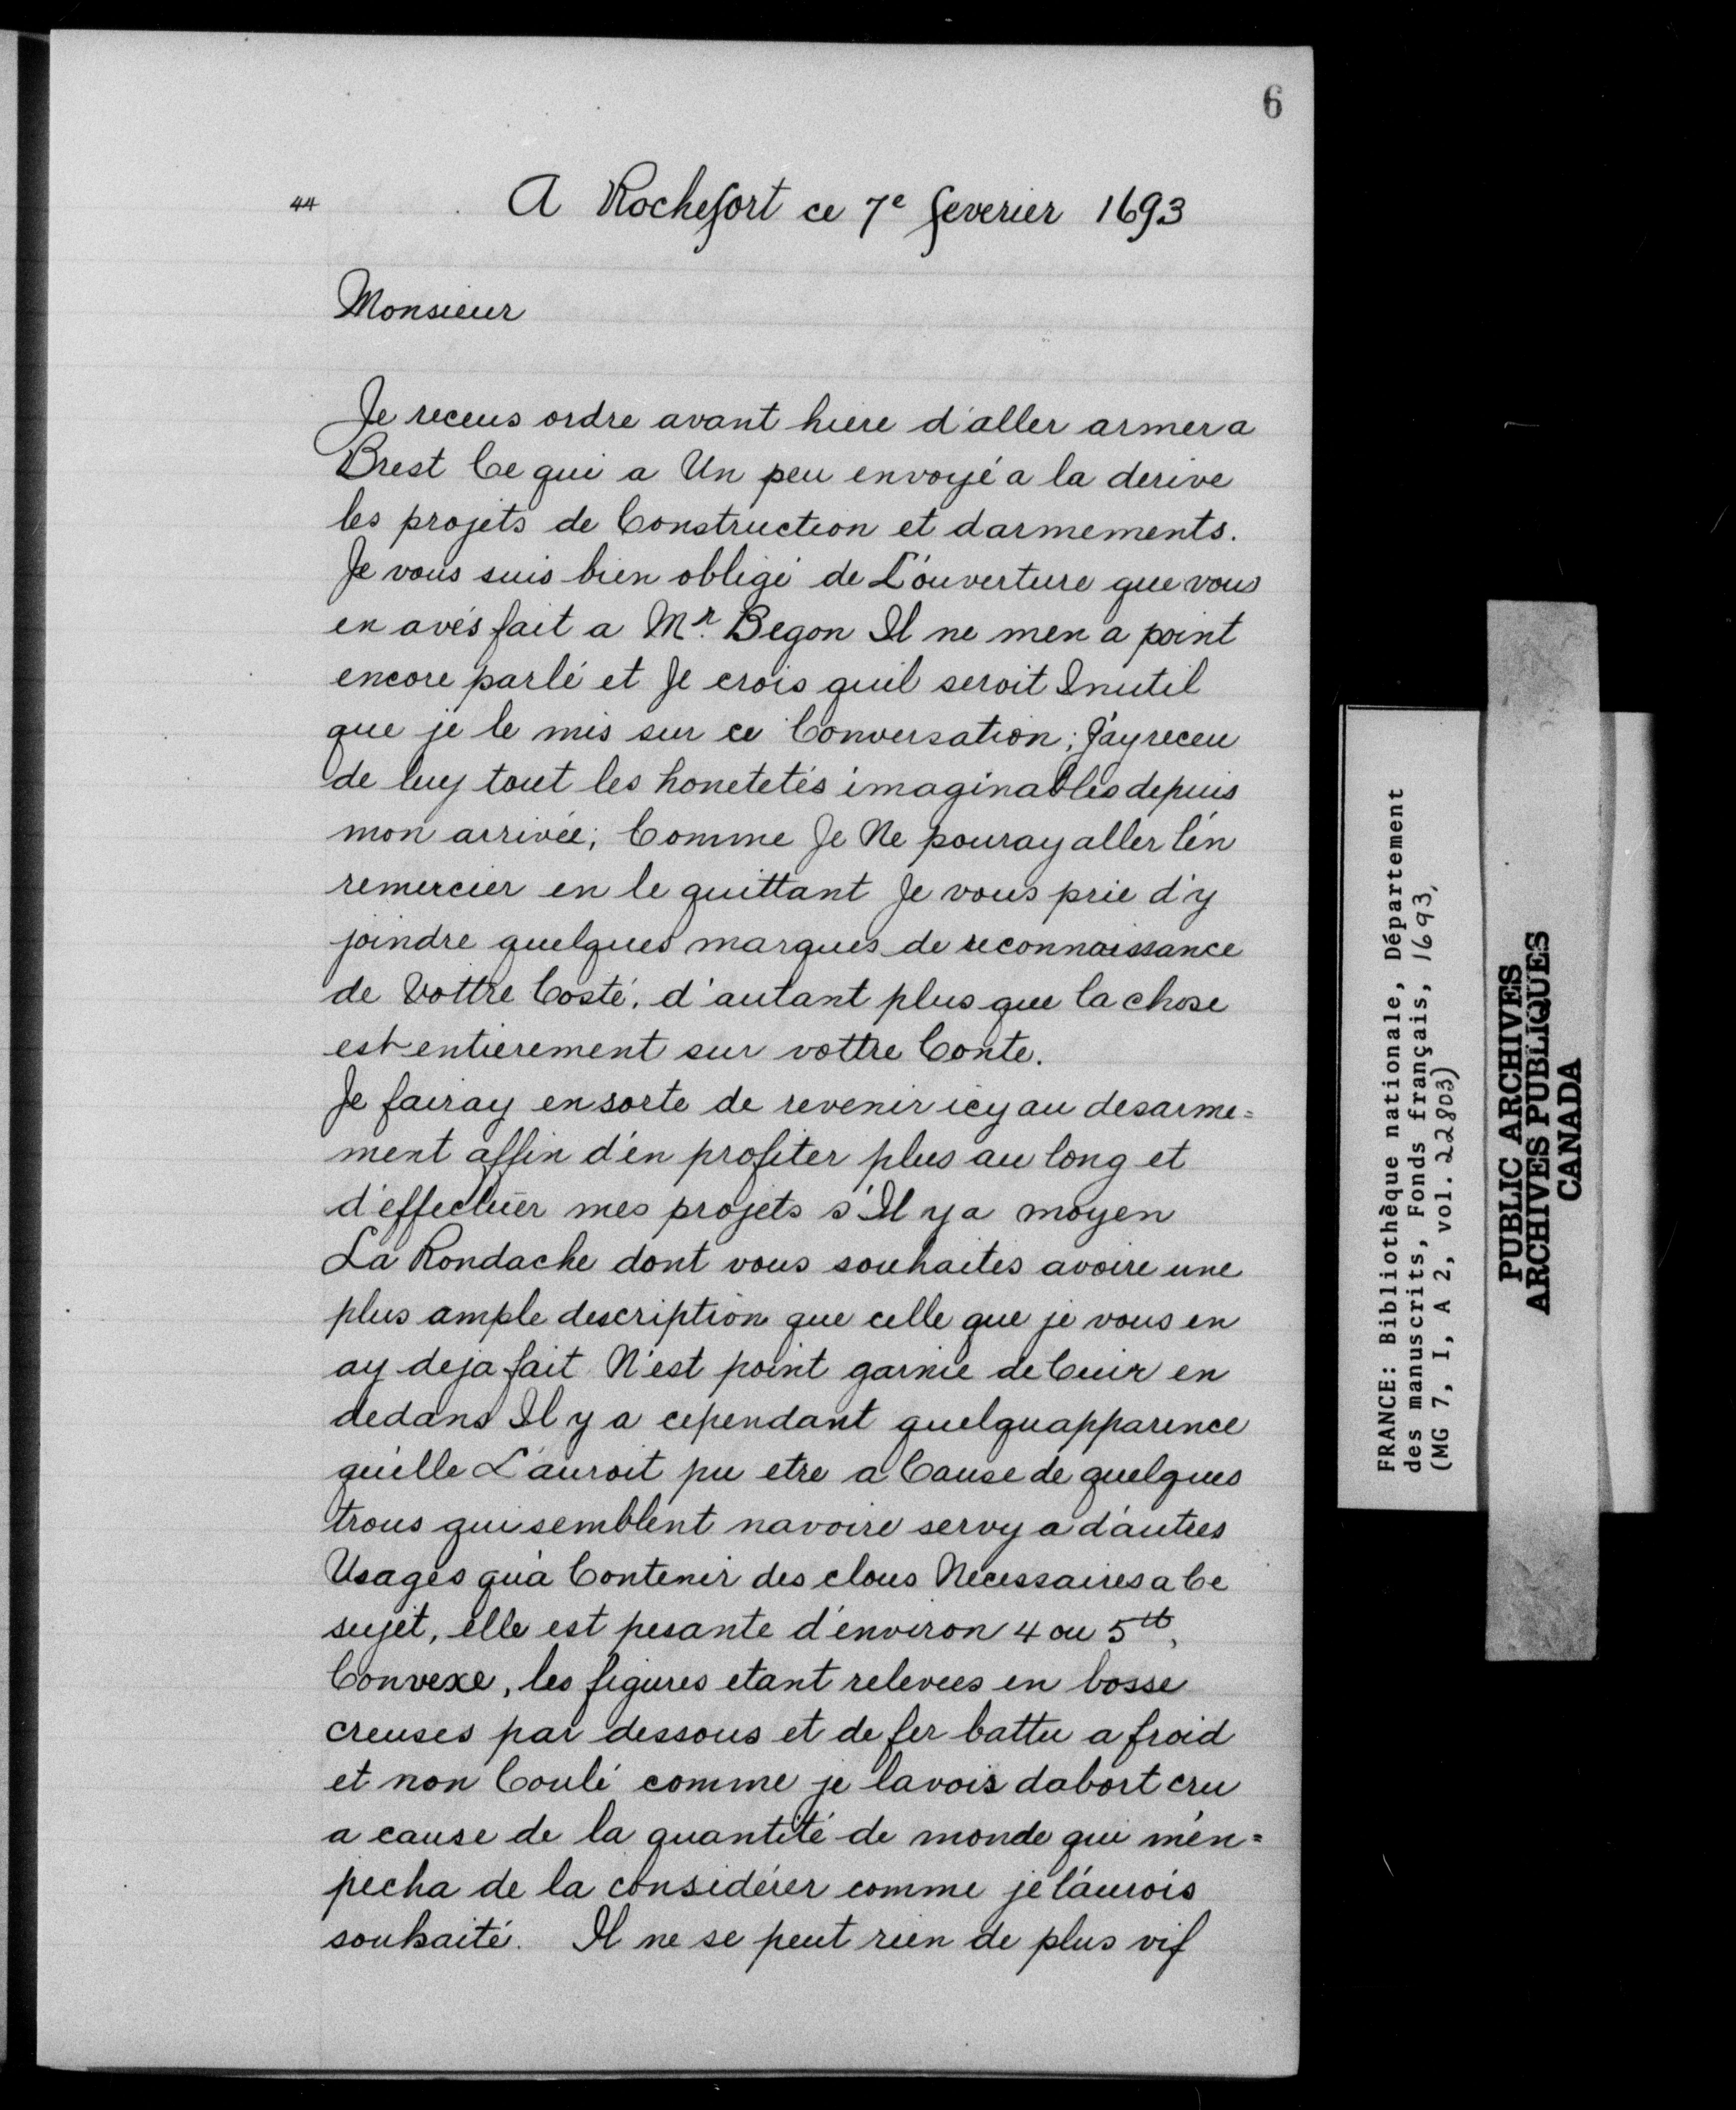 6
44
A Rochefort ce 7e feverier 1693
Monsieur
Je receus ordre avant hiere d'aller armer a
Brest Ce qui a Un peu envoyé a la derive
les projets de Construction et darmements.
Je vous suis bien obligé de L'ouverture que vous
en avés fait a Mr. Begon Il ne men a point
encore parlé et Je crois quil seroit Inutil
que je le mis sur ce Conversation; J'ay receu
de luy tout les honetetés imaginables depuis
mon arrivée; Comme Je Ne pouray aller l'en
remercier en le quittant Je vous prie d'y
joindre quelques marques de reconnaissance
de Vottre Costé, d'autant plus que la chose
est entierement sur vottre Conte.
Je fairay ensorte de revenir icy au desarme=
ment affin d'en profiter plus au long et
d'effectuer mes projets s'Il y a moyen
La Rondache dont vous souhaites avoire une
plus ample description que celle que je vous en
ay deja fait N'est point garnie de Cuir en
dedans Il y a cependant quelquapparence
qu'elle L'auroit pu etre a Cause de quelques
trous qui semblent navoire servy a d'autres
Usages qu'a Contenir des clous Necessaires a Ce
sujet, elle est pesante d'environ 4 ou 5 lb,
Convexe, les figures etant relevees en bosse
creuses par dessous et de fer battu a froid
et non Coulé comme je lavois dabort cru
a cause de la quantité de monde qui m'en=
pecha de la considérer comme je l'aurois
souhaité. Il ne se peut rien de plus vif
FRANCE: Bibliothèque nationale, Département
des manuscrits, Fonds français, 1693,
(MG 7, I, A 2, vol. 22803)
PUBLIC ARCHIVES
ARCHIVES PUBLIQUES
CANADA